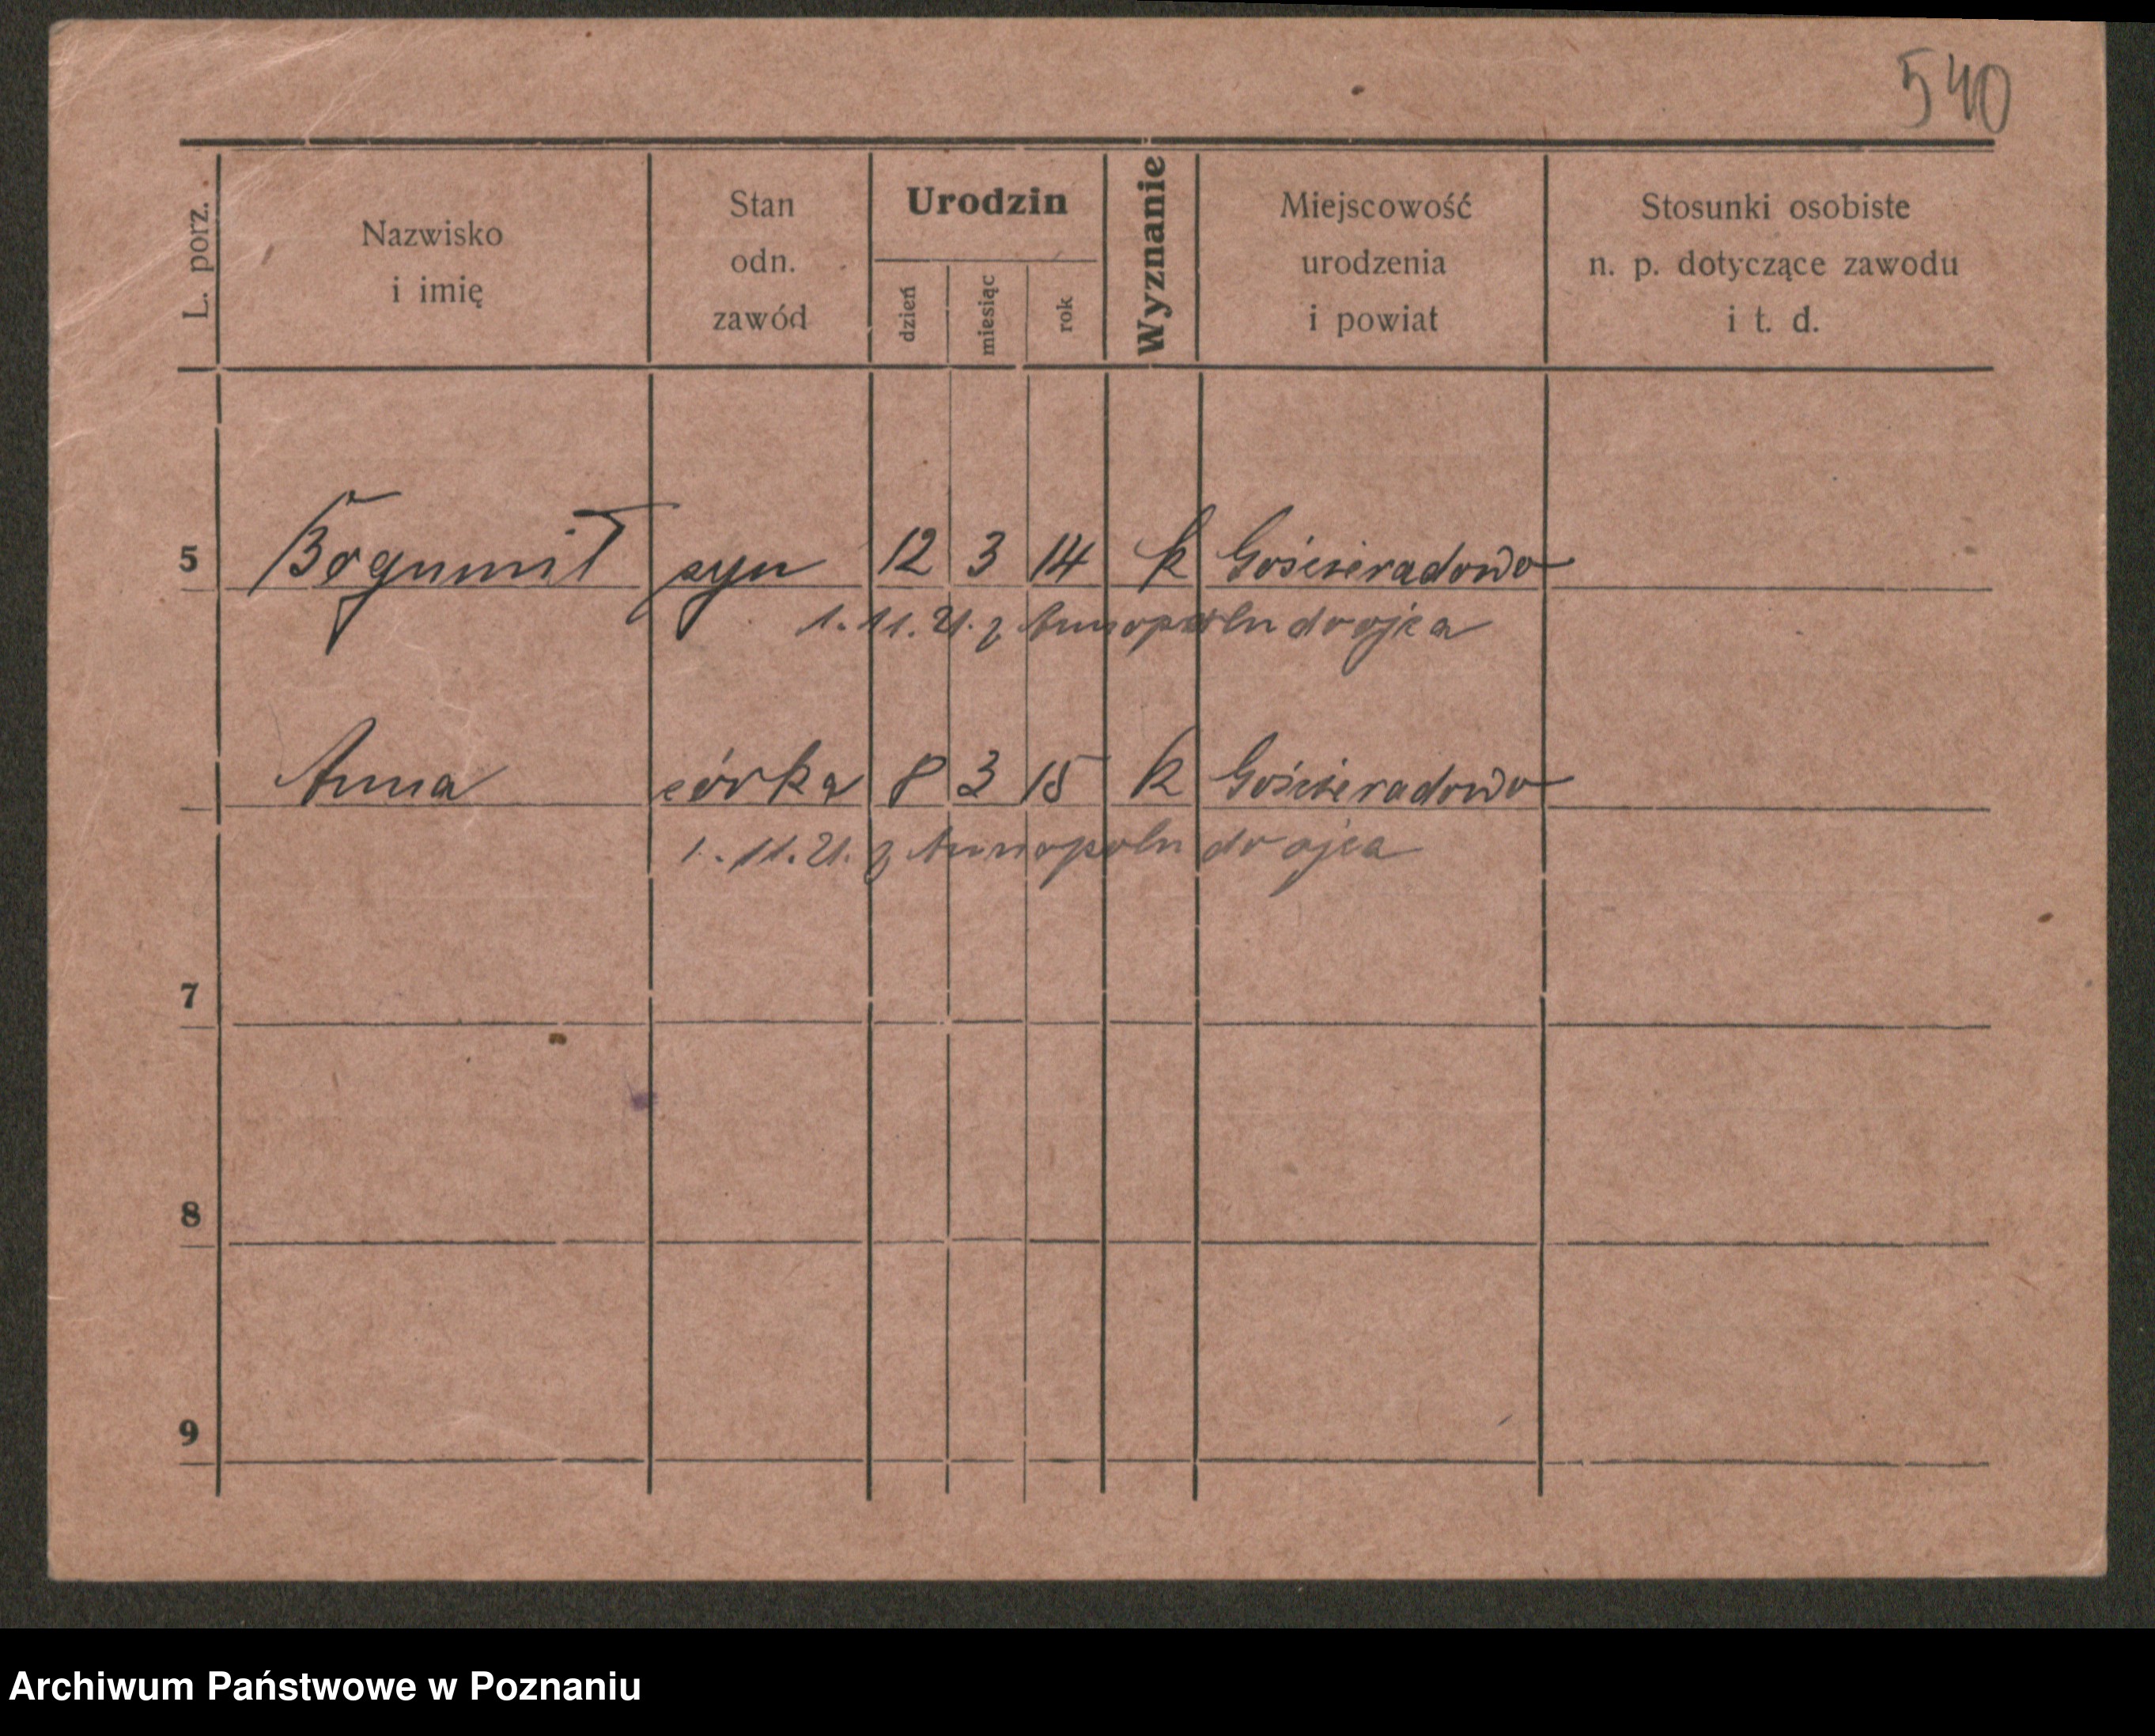 540
L. porz.
Nazwisko
i imię
Stan
odn.
zawód
Urodzin
dzień
miesiąc
rok
Wyznanie
Miejscowość
urodzenia
i powiat
Stosunki osobiste
n. p. dotyczące zawodu
i t. d.
5 Bogumił syn 12 3 14 k Gościeradowo
1.11.21. z Annopolu do ojca
Anna córka 8 3 15 k Gościeradowo
1.11.21. z Annopolu do ojca
7
8
9
Archiwum Państwowe w Poznaniu